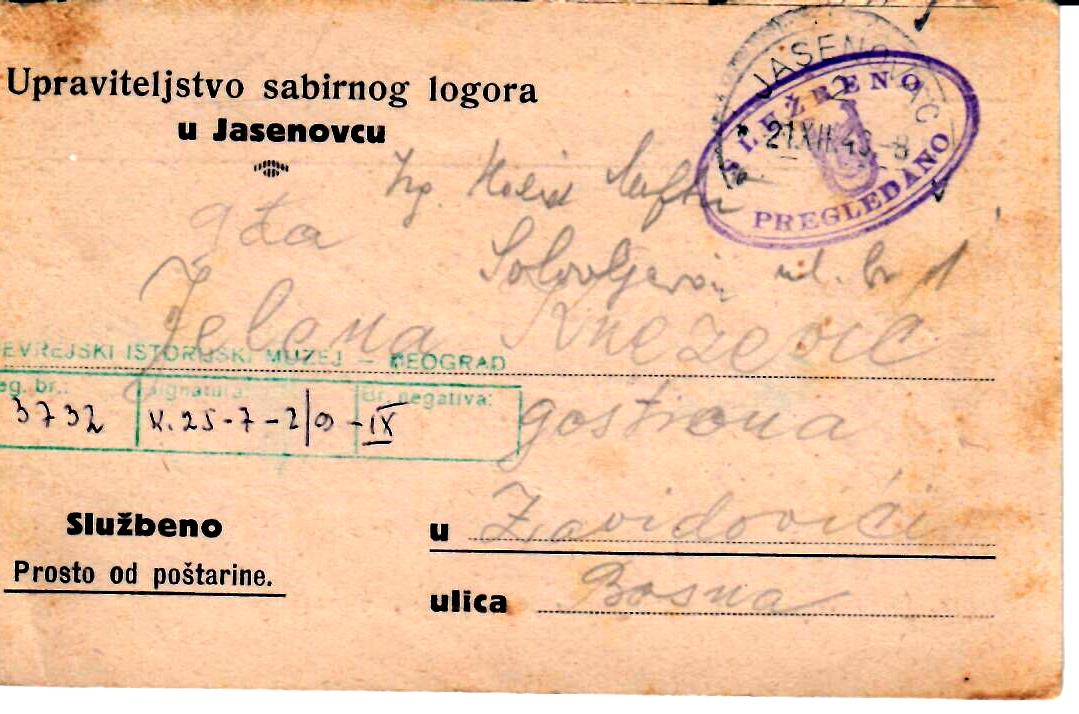 Upraviteljstvo sabirnog logora
u Jasenovcu
JASENOVAC
21.XII.43.-8
SLUŽBENO
PREGLEDANO
ul. br 1
gđa
Jelena Knežević
JEVREJSKI ISTORIJSKI MUZEJ — BEOGRAD
eg. br.: signatura: Br. negativa:
3732 K.25-7-2/9-IX
gostiona
Službeno
u Zavidovići
Prosto od poštarine.
ulica Bosna